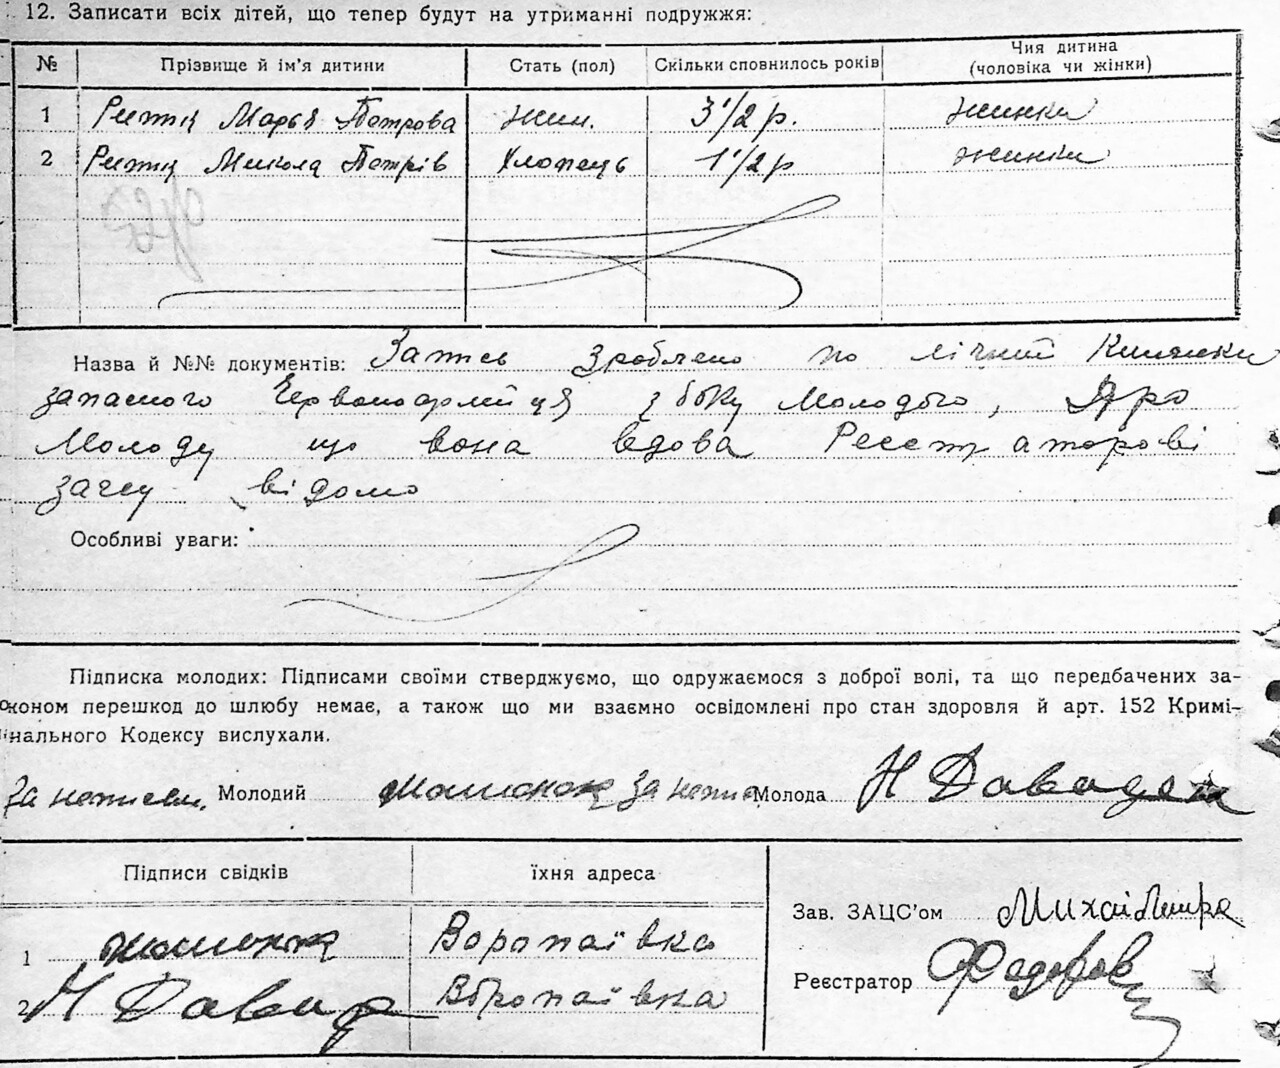 12. Записати всіх дітей, що тепер будут на утриманні подружжя:
№ Прізвище й ім'я дитини Стать (пол) Скільки сповнилось років Чия дитина (чоловіка чи жінки)
1 Марья Петрова жин. 3 1/2 р. жинки
2 Микола Петрів хлопець 1 1/2 р жинки
Назва й №№ документів: Запись зроблено по лічний Книжки
запасного Червоноармійця з боку Молодого, Про
Молоду що вона вдова Реєстраторові
загсу відомо
Особливі уваги:
Підписка молодих: Підписами своїми стверджуємо, що одружаємося з доброї волі, та що передбачених за-
коном перешкод до шлюбу немає, а також що ми взаємно освідомлені про стан здоровля й арт. 152 Кримі-
нального Кодексу вислухали.
За неписьм. Молодий За непис Молода Н Давиден
Підписи свідків їхня адреса
Зав. ЗАЦС'ом
1 Воропаївка
Реєстратор Федоров
2 Н Давид Воропаївка